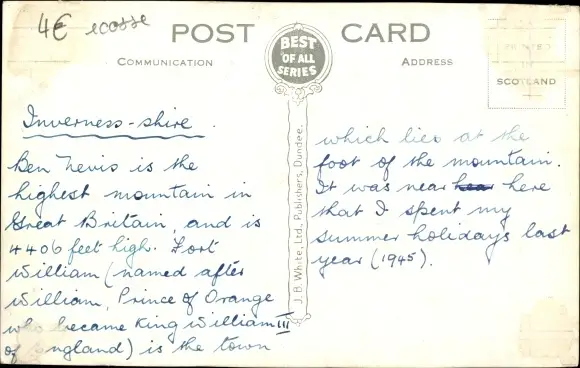 4€ ecosse
POST CARD
BEST
OF ALL
SERIES
COMMUNICATION
ADDRESS
PRINTED
IN
SCOTLAND
Inverness-shire.
Ben Nevis is the
highest mountain in
Great Britain, and is
4406 feet high. Fort
William (named after
William, Prince of Orange
who became King William III
of England) is the town
J.B. White, Ltd., Publishers, Dundee.
which lies at the
foot of the mountain.
It was near here
that I spent my
summer holidays last
year (1945).